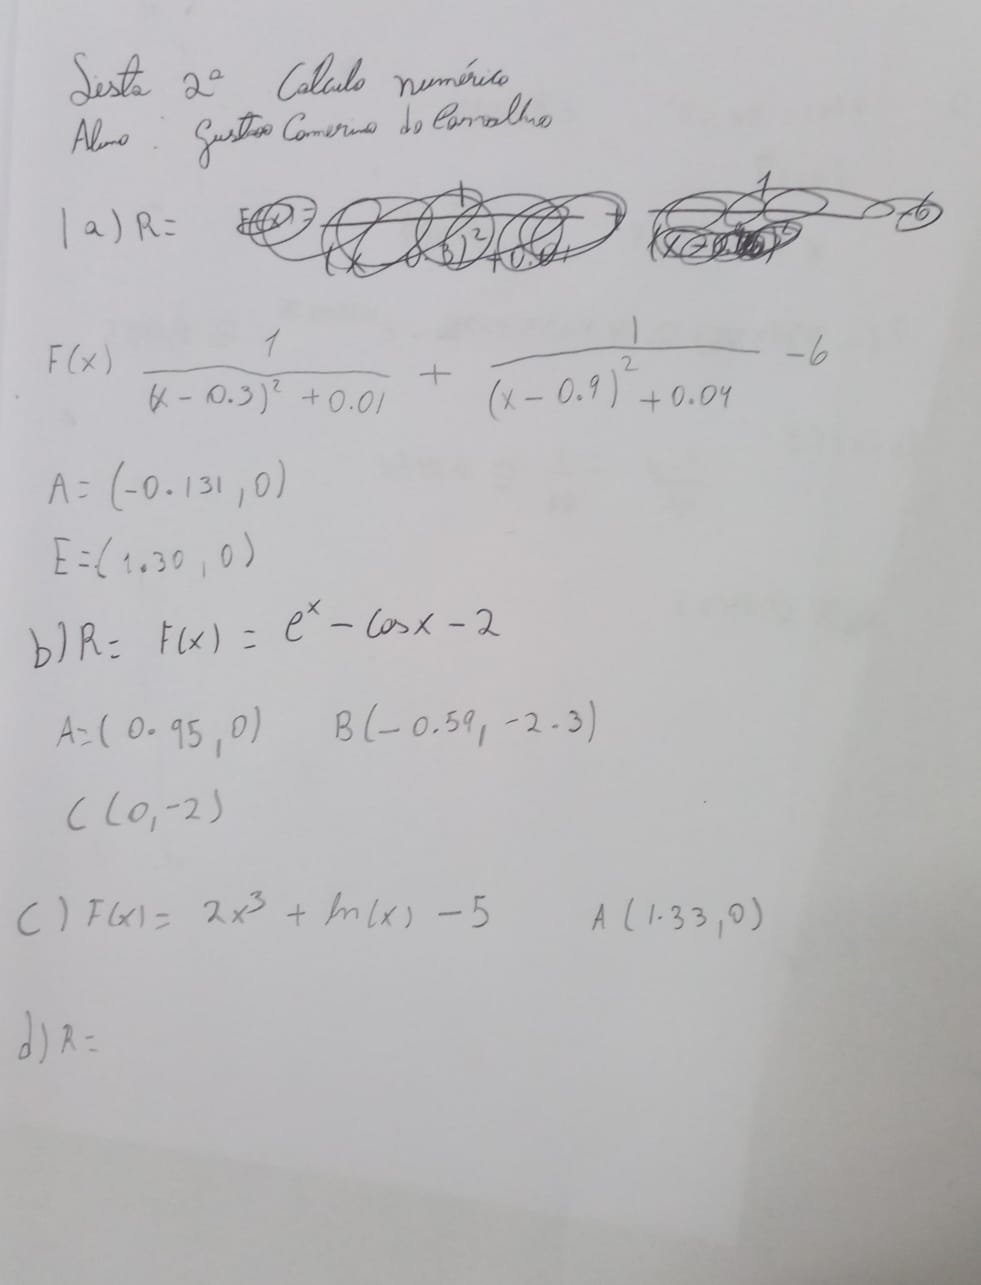 Lista 2ª Calculo numérico
Aluno : Gustavo Camerino do Carvalho
1 a) R=
F(x) 1/((x - 0.3)² + 0.01) + 1/((x - 0.9)² + 0.04) - 6
A = (-0.131, 0)
E = (1.30, 0)
b) R= F(x) = e^x - Cos x - 2
A = (0.95, 0) B(-0.59, -2.3)
C (0, -2)
C) F(x) = 2x³ + ln(x) - 5 A (1.33, 0)
d) R=